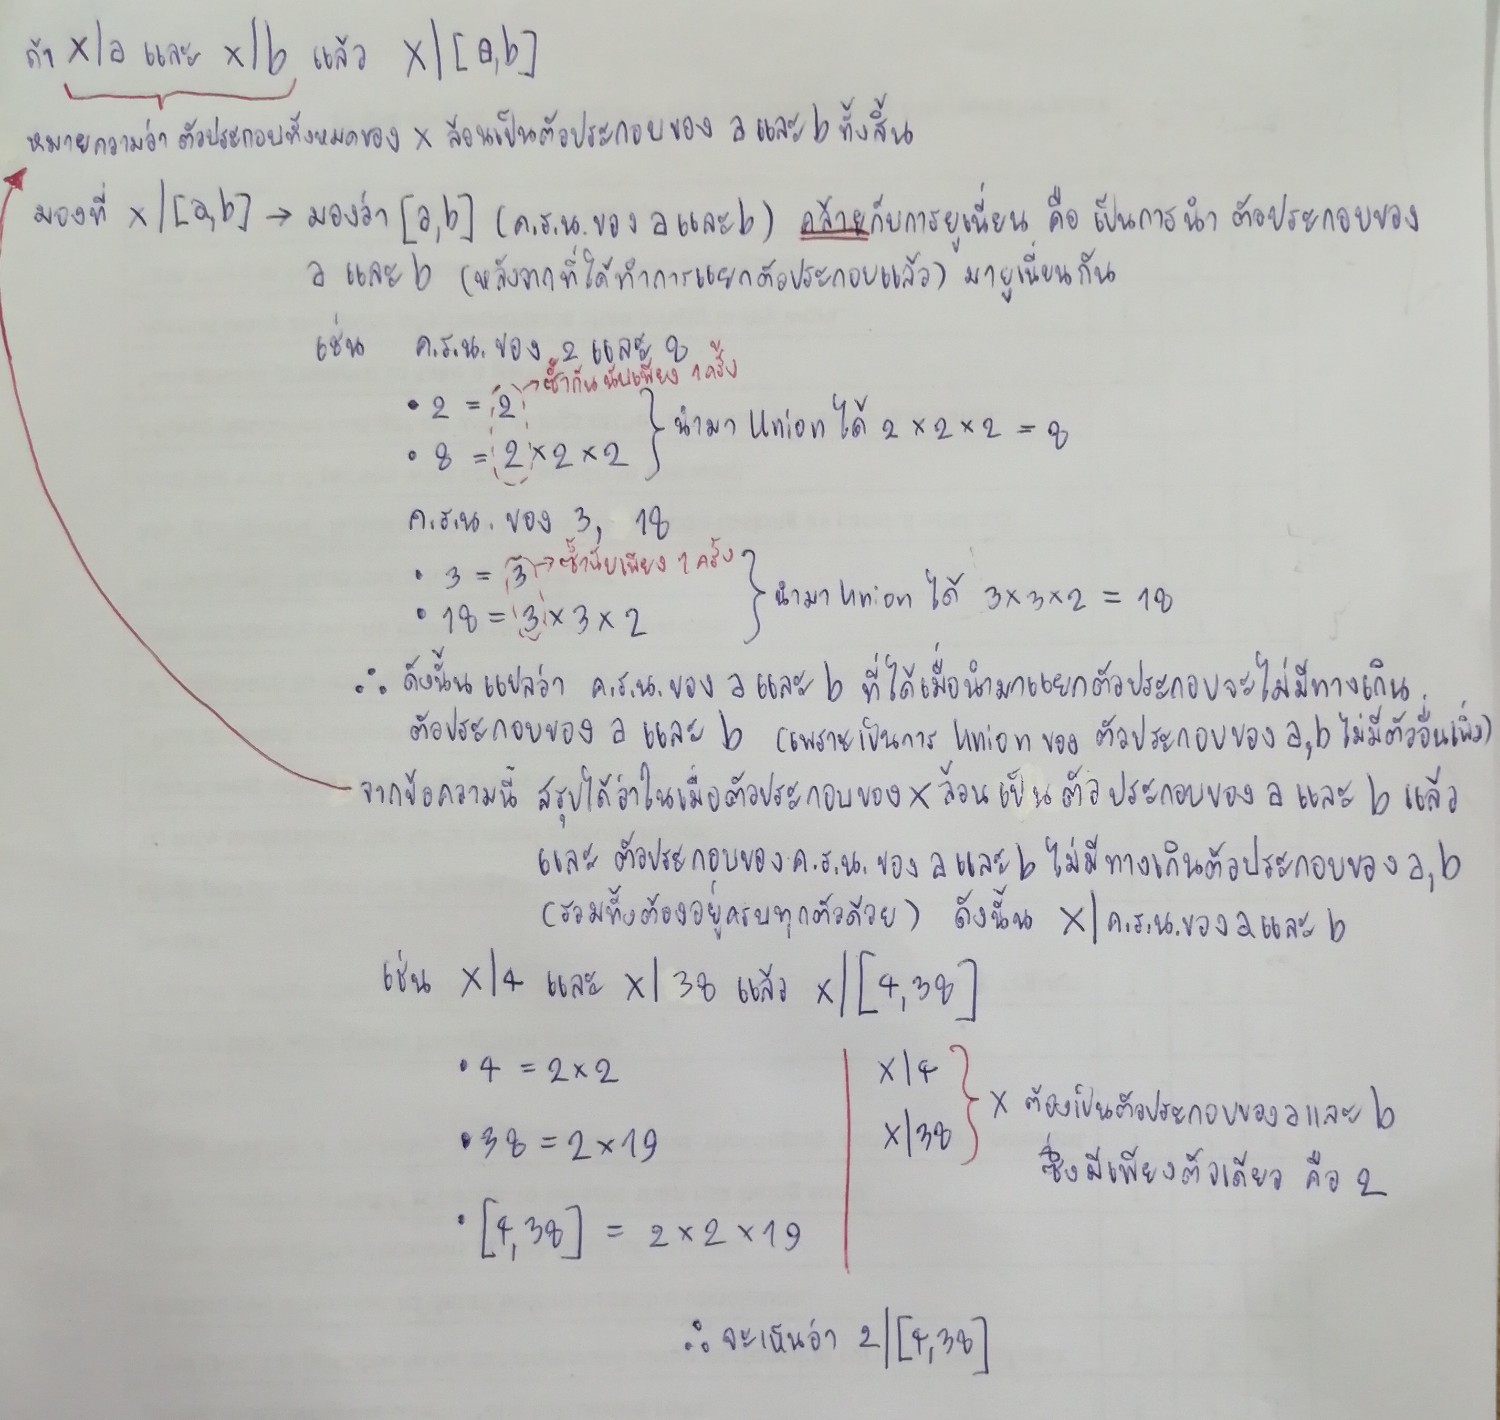 ถ้า x|a และ x|b แล้ว x|[a,b]
หมายความว่า ตัวประกอบทั้งหมดของ x ล้วนเป็นตัวประกอบของ a และ b ทั้งสิ้น
มองที่ x|[a,b] → มองว่า [a,b] (ค.ร.น. ของ a และ b) คล้ายกับการยูเนี่ยน คือ เป็นการนำ ตัวประกอบของ
a และ b (หลังจากที่ได้ทำการแยกตัวประกอบแล้ว) มายูเนี่ยนกัน
เช่น ค.ร.น. ของ 2 และ 8
• 2 = 2 → ซ้ำกันนับเพียง 1 ครั้ง
• 8 = 2 × 2 × 2 } นำมา Union ได้ 2 × 2 × 2 = 8
ค.ร.น. ของ 3, 18
• 3 = 3 → ซ้ำนับเพียง 1 ครั้ง
• 18 = 3 × 3 × 2 } นำมา Union ได้ 3×3×2 = 18
∴ ดังนั้น แปลว่า ค.ร.น. ของ a และ b ที่ได้เมื่อนำมาแยกตัวประกอบจะไม่มีทางเกิน
ตัวประกอบของ a และ b (เพราะเป็นการ Union ของ ตัวประกอบของ a,b ไม่มีตัวอื่นเพิ่ม)
จากข้อความนี้ สรุปได้ว่าในเมื่อตัวประกอบของ x ล้วนเป็น ตัวประกอบของ a และ b แล้ว
และ ตัวประกอบของ ค.ร.น. ของ a และ b ไม่มีทางเกินตัวประกอบของ a,b
(รวมทั้งต้องอยู่ครบทุกตัวด้วย) ดังนั้น x|ค.ร.น. ของ a และ b
เช่น x|4 และ x|38 แล้ว x|[4,38]
• 4 = 2×2
• 38 = 2 × 19
• [4,38] = 2 × 2 × 19
x|4
x|38 } x ต้องเป็นตัวประกอบของ a และ b
ซึ่งมีเพียงตัวเดียว คือ 2
∴ จะเห็นว่า 2|[4,38]